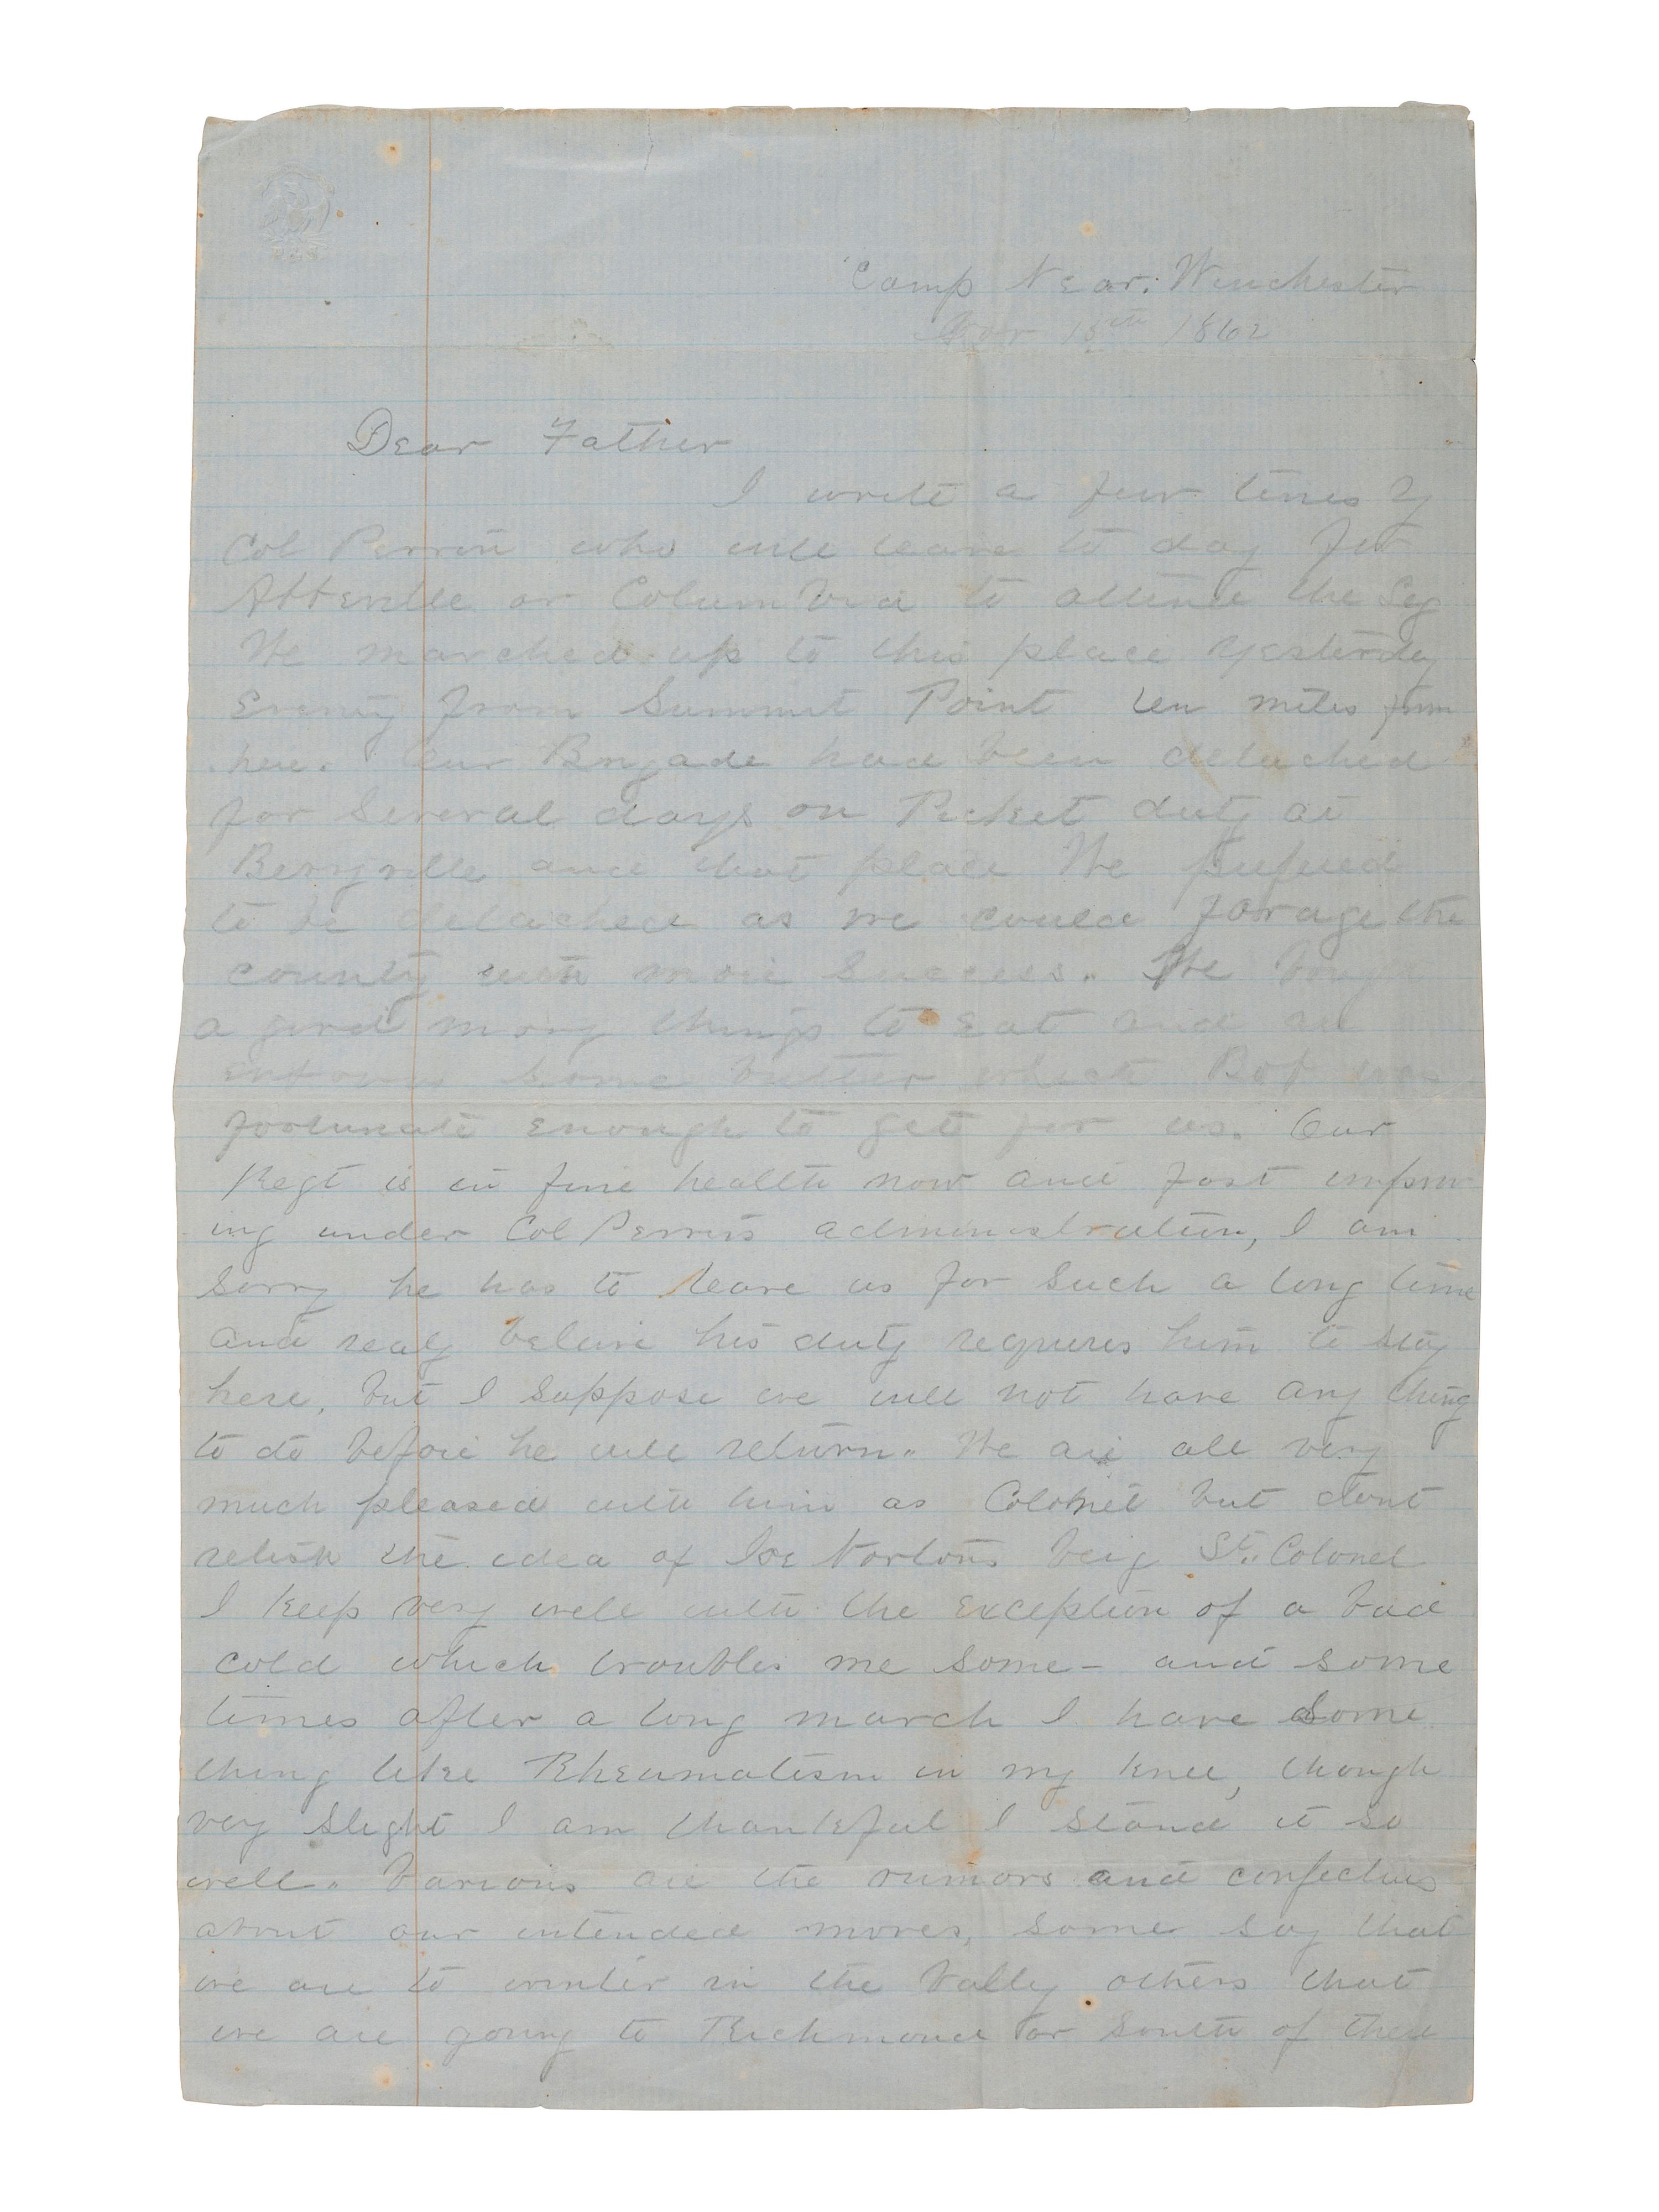 Camp Near. Winchester
Nov 15th 1862
Dear Father
I write a few lines by
Col Perrin who will leave to day for
Abbeville or Columbia to attend the Leg
We marched up to this place yesterday
Evening from Summit Point ten miles from
here. Our Brigade had been detached
for several days on Picket duty at
Berryville and that place We prefered
to be detached as we could forage the
county with more success. We
a good many things to Eat and
some butter which Bob was
fortunate enough to get for us. Our
Regt is in fine health now and fast improv
ing under Col Perrin's administration, I am
sorry he has to leave us for such a long time
and realy beleive his duty requires him to stay
here, but I suppose we will not have any thing
to do before he will return. We are all very
much pleased with him as Colonel but dont
relish the idea of Joe Norton's beig Lt. Colonel
I keep very well with the Exception of a bad
cold which troubles me some - and some
times after a long march I have some
thing like Rheumatism in my knee, though
very slight I am thankful I stand it so
well. Various are the rumors and conjectures
about our intended moves, some say that
we are to winter in the Vally others that
we are going to Richmond or South of there